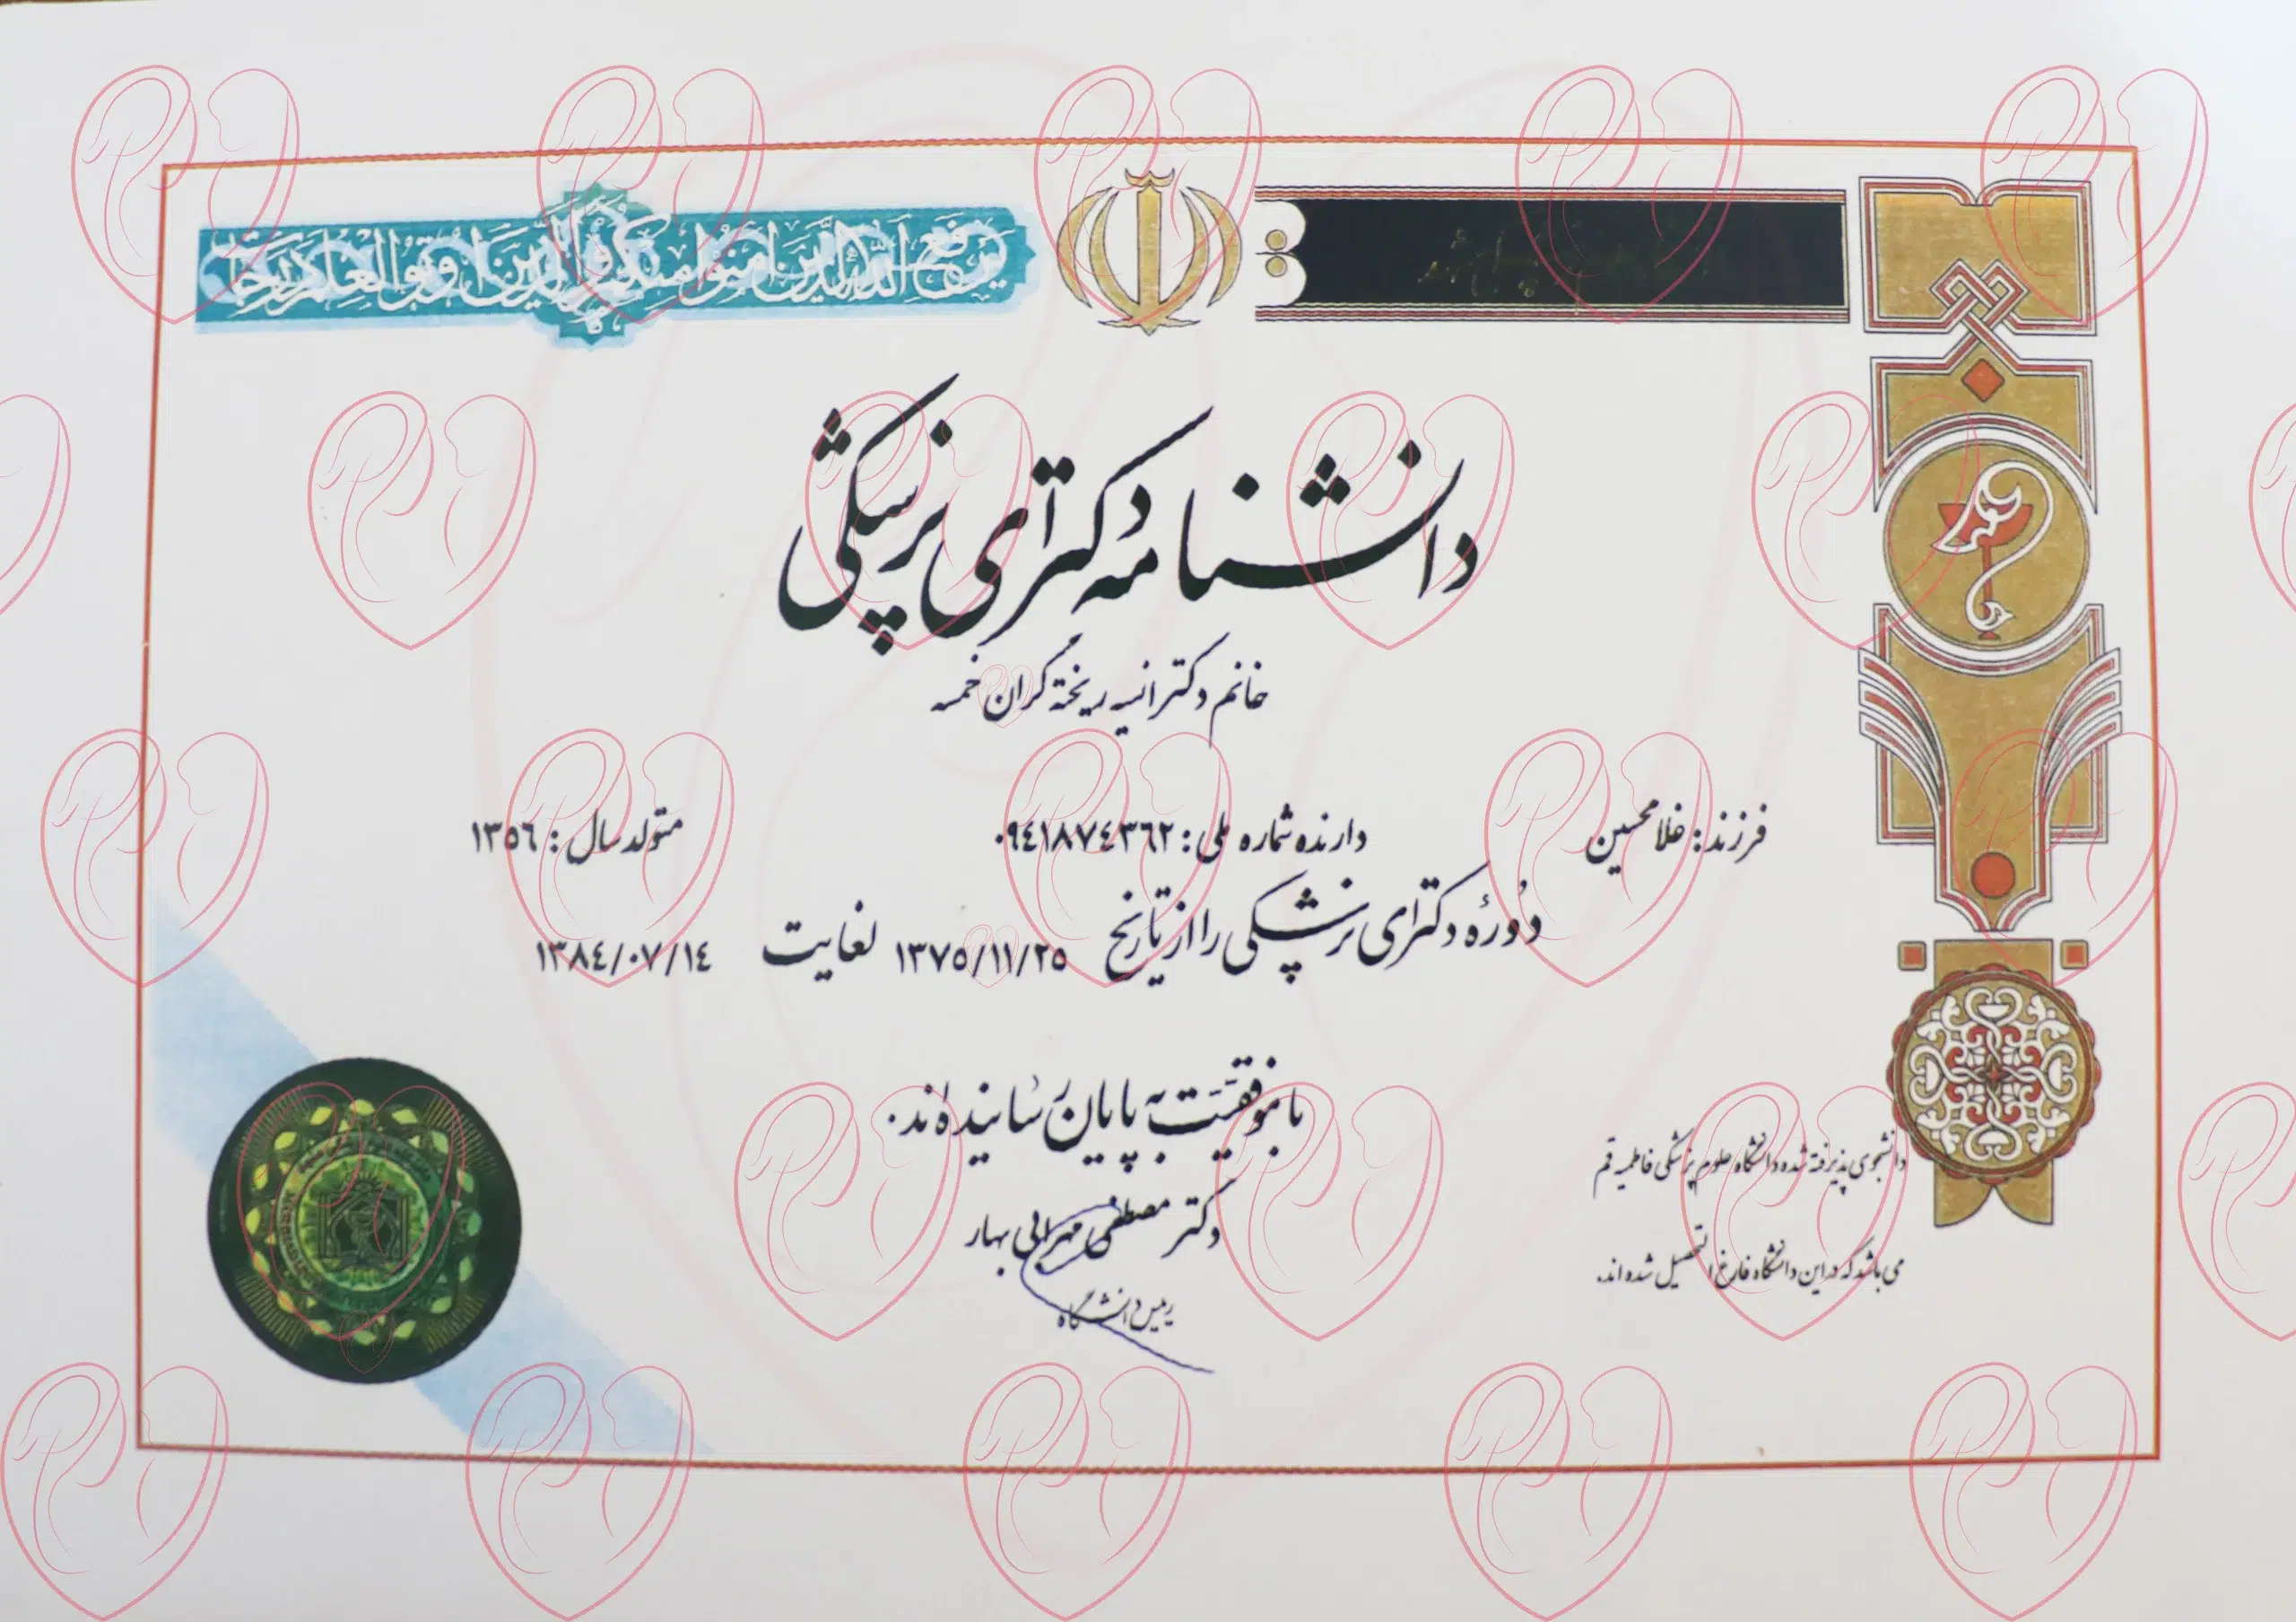 يرفع الله الذين امنوا منكم والذين اوتوا العلم درجات
دانشنامه دکترای پزشکی
خانم دکتر انسیه ریخته گران خمسه
فرزند: غلامحسین دارنده شماره ملی: ۰۹٤۱۸۷٤۳٦۲ متولد سال: ۱۳۵٦
دورهٔ دکترای پزشکی را از تاریخ ۱۳۷۵/۱۱/۲۵ لغایت ۱۳۸٤/۰۷/۱٤
با موفقیت به پایان رسانیده‌اند.
دکتر مصطفی مهرابی بهار
رییس دانشگاه
دانشجوی پذیرفته شده دانشگاه علوم پزشکی فاطمیه قم
می باشد که در این دانشگاه فارغ التحصیل شده اند.